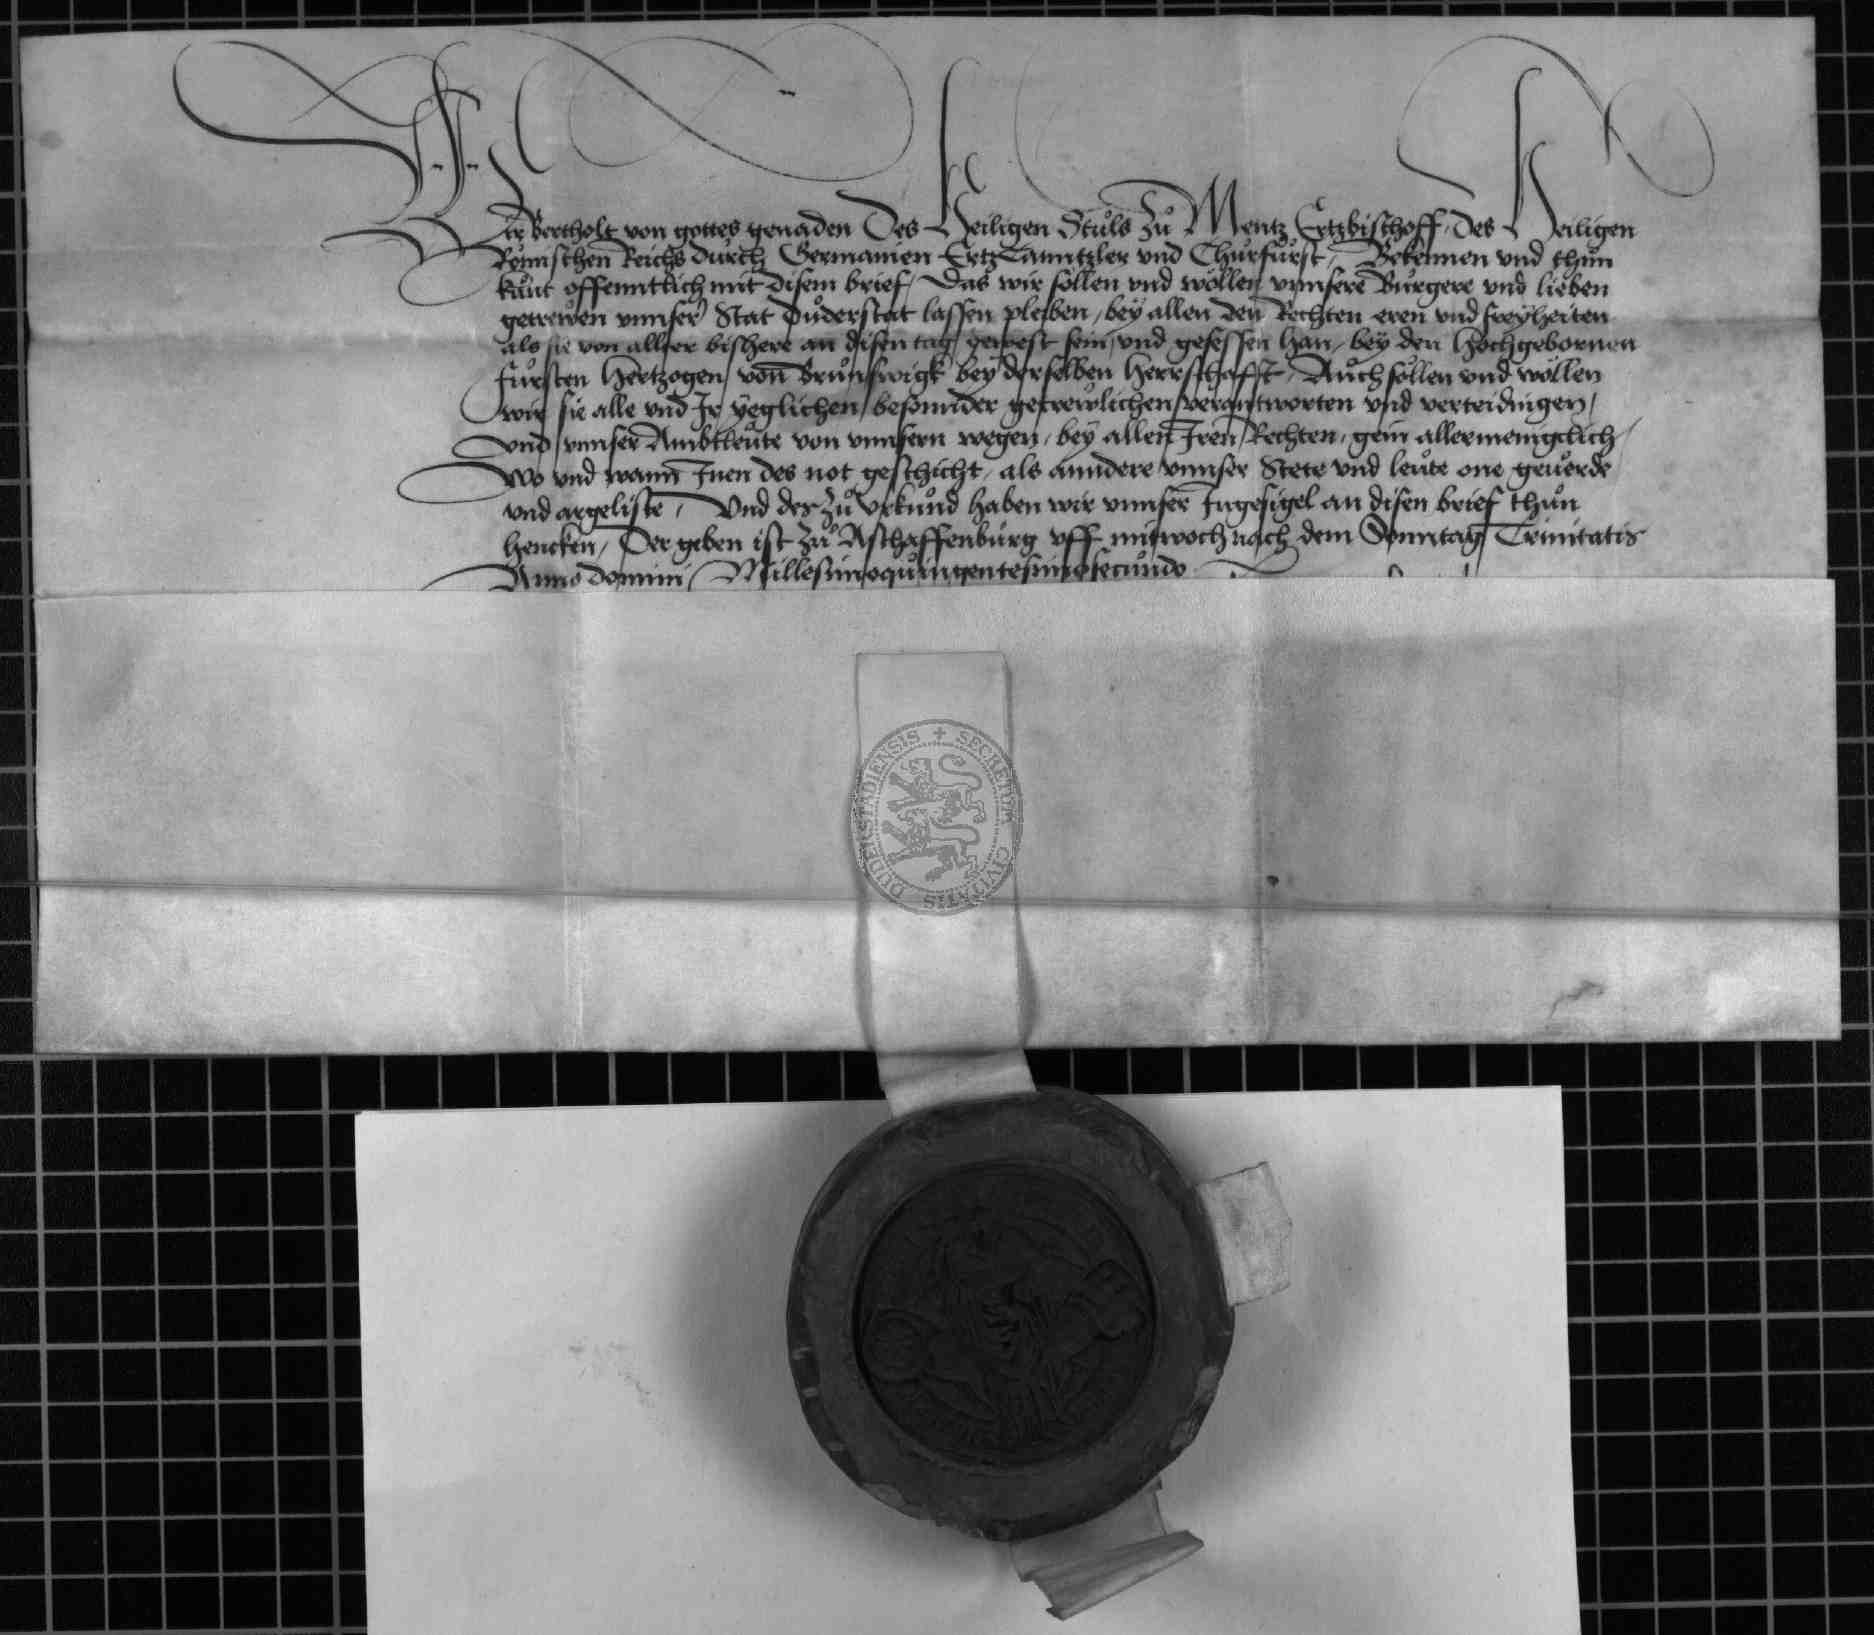 Wir Bertholt von gottes genaden Des Heiligen Stůls Zů Mentz Ertzbischoff, des Heiligen
Römischen Reichs durch Germanien Ertz Canntzler vnd Chůrfůrst, Bekennen vnd thůn
kůnt offenntlich mit disem brief, Das wir söllen vnd wöllen vnnsere Bůrgere vnd lieben
getrewen vnnser Stat Důderstat lassen pleiben, bey allen den Rechten eren vnd freyheiten
als sie von allter bishere an disen tag gewest sein, vnd gesessen han, bey den Hochgebornen
fůrsten Hertzogen von Brůnßwigk bey derselben Herrschafft, Aůch söllen vnd wöllen
wir sie alle vnd Jr yeglichen besonnder getrewlichen verantworten vnd verteidingen,
vnd vnnser Ambtleůte von vnnsern wegen, bey allen Jren Rechten, gein allermeniglich,
Wo vnd wann Jnen des not geschicht, als anndere vnnser Stete vnd leůte one geuerde
vnd argeliste, Vnd des zů Vrkůnd haben wir vnnser Jngesigel an disen brief thůn
hencken, Der geben ist Zů Aschaffenbůrg vff mitwoch nach dem Sonntag Trinitatis
Anno domini Millesimoquingentesimosecůndo
SECRETUM CIVITATIS DUDERSTADIENSIS